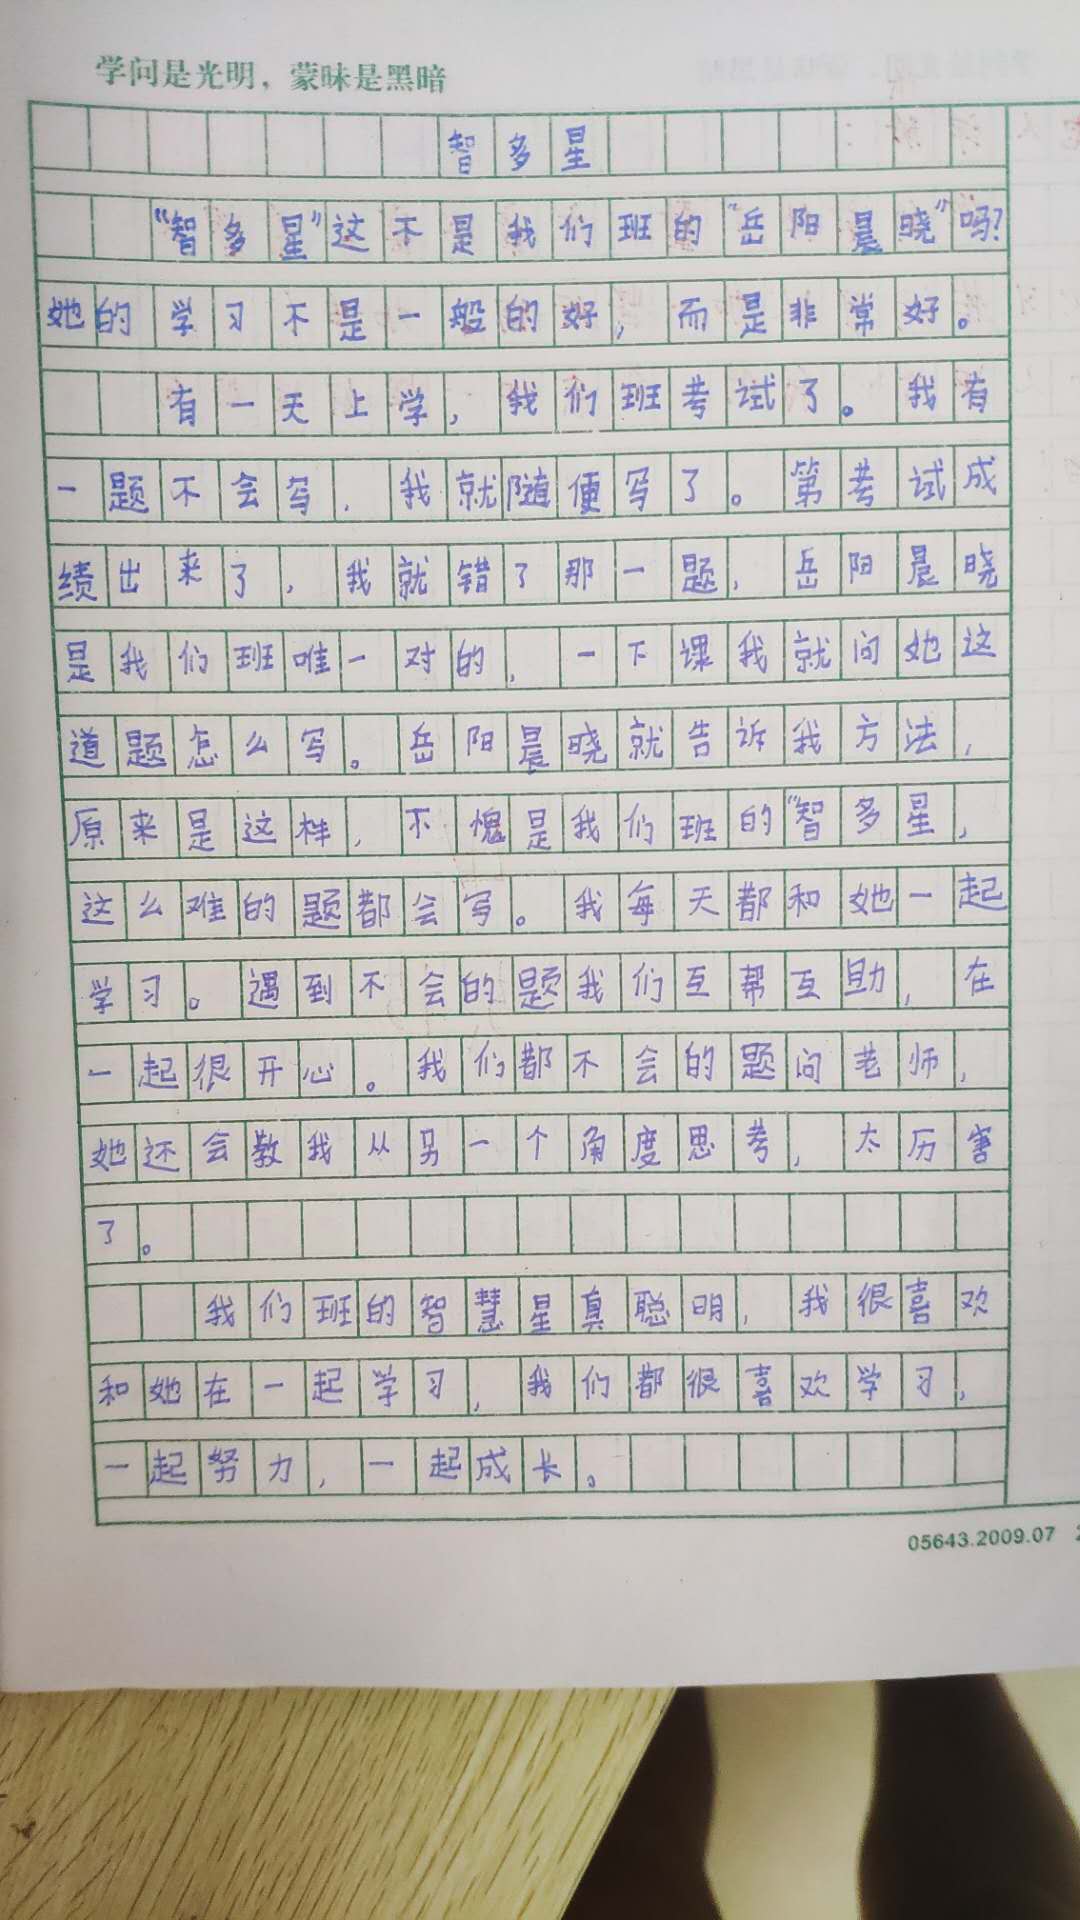 学问是光明，蒙昧是黑暗
智多星
“智多星”这不是我们班的“岳阳晨晓”吗？
她的学习不是一般的好，而是非常好。
有一天上学，我们班考试了。我有
一题不会写，我就随便写了。第考试成
绩出来了，我就错了那一题，岳阳晨晓
是我们班唯一对的，一下课我就问她这
道题怎么写。岳阳晨晓就告诉我方法，
原来是这样，不愧是我们班的“智多星，
这么难的题都会写。我每天都和她一起
学习。遇到不会的题我们互帮互助，在
一起很开心。我们都不会的题问老师，
她还会教我从另一个角度思考，太历害
了。
我们班的智慧星真聪明，我很喜欢
和她在一起学习，我们都很喜欢学习，
一起努力，一起成长。
05643.2009.07